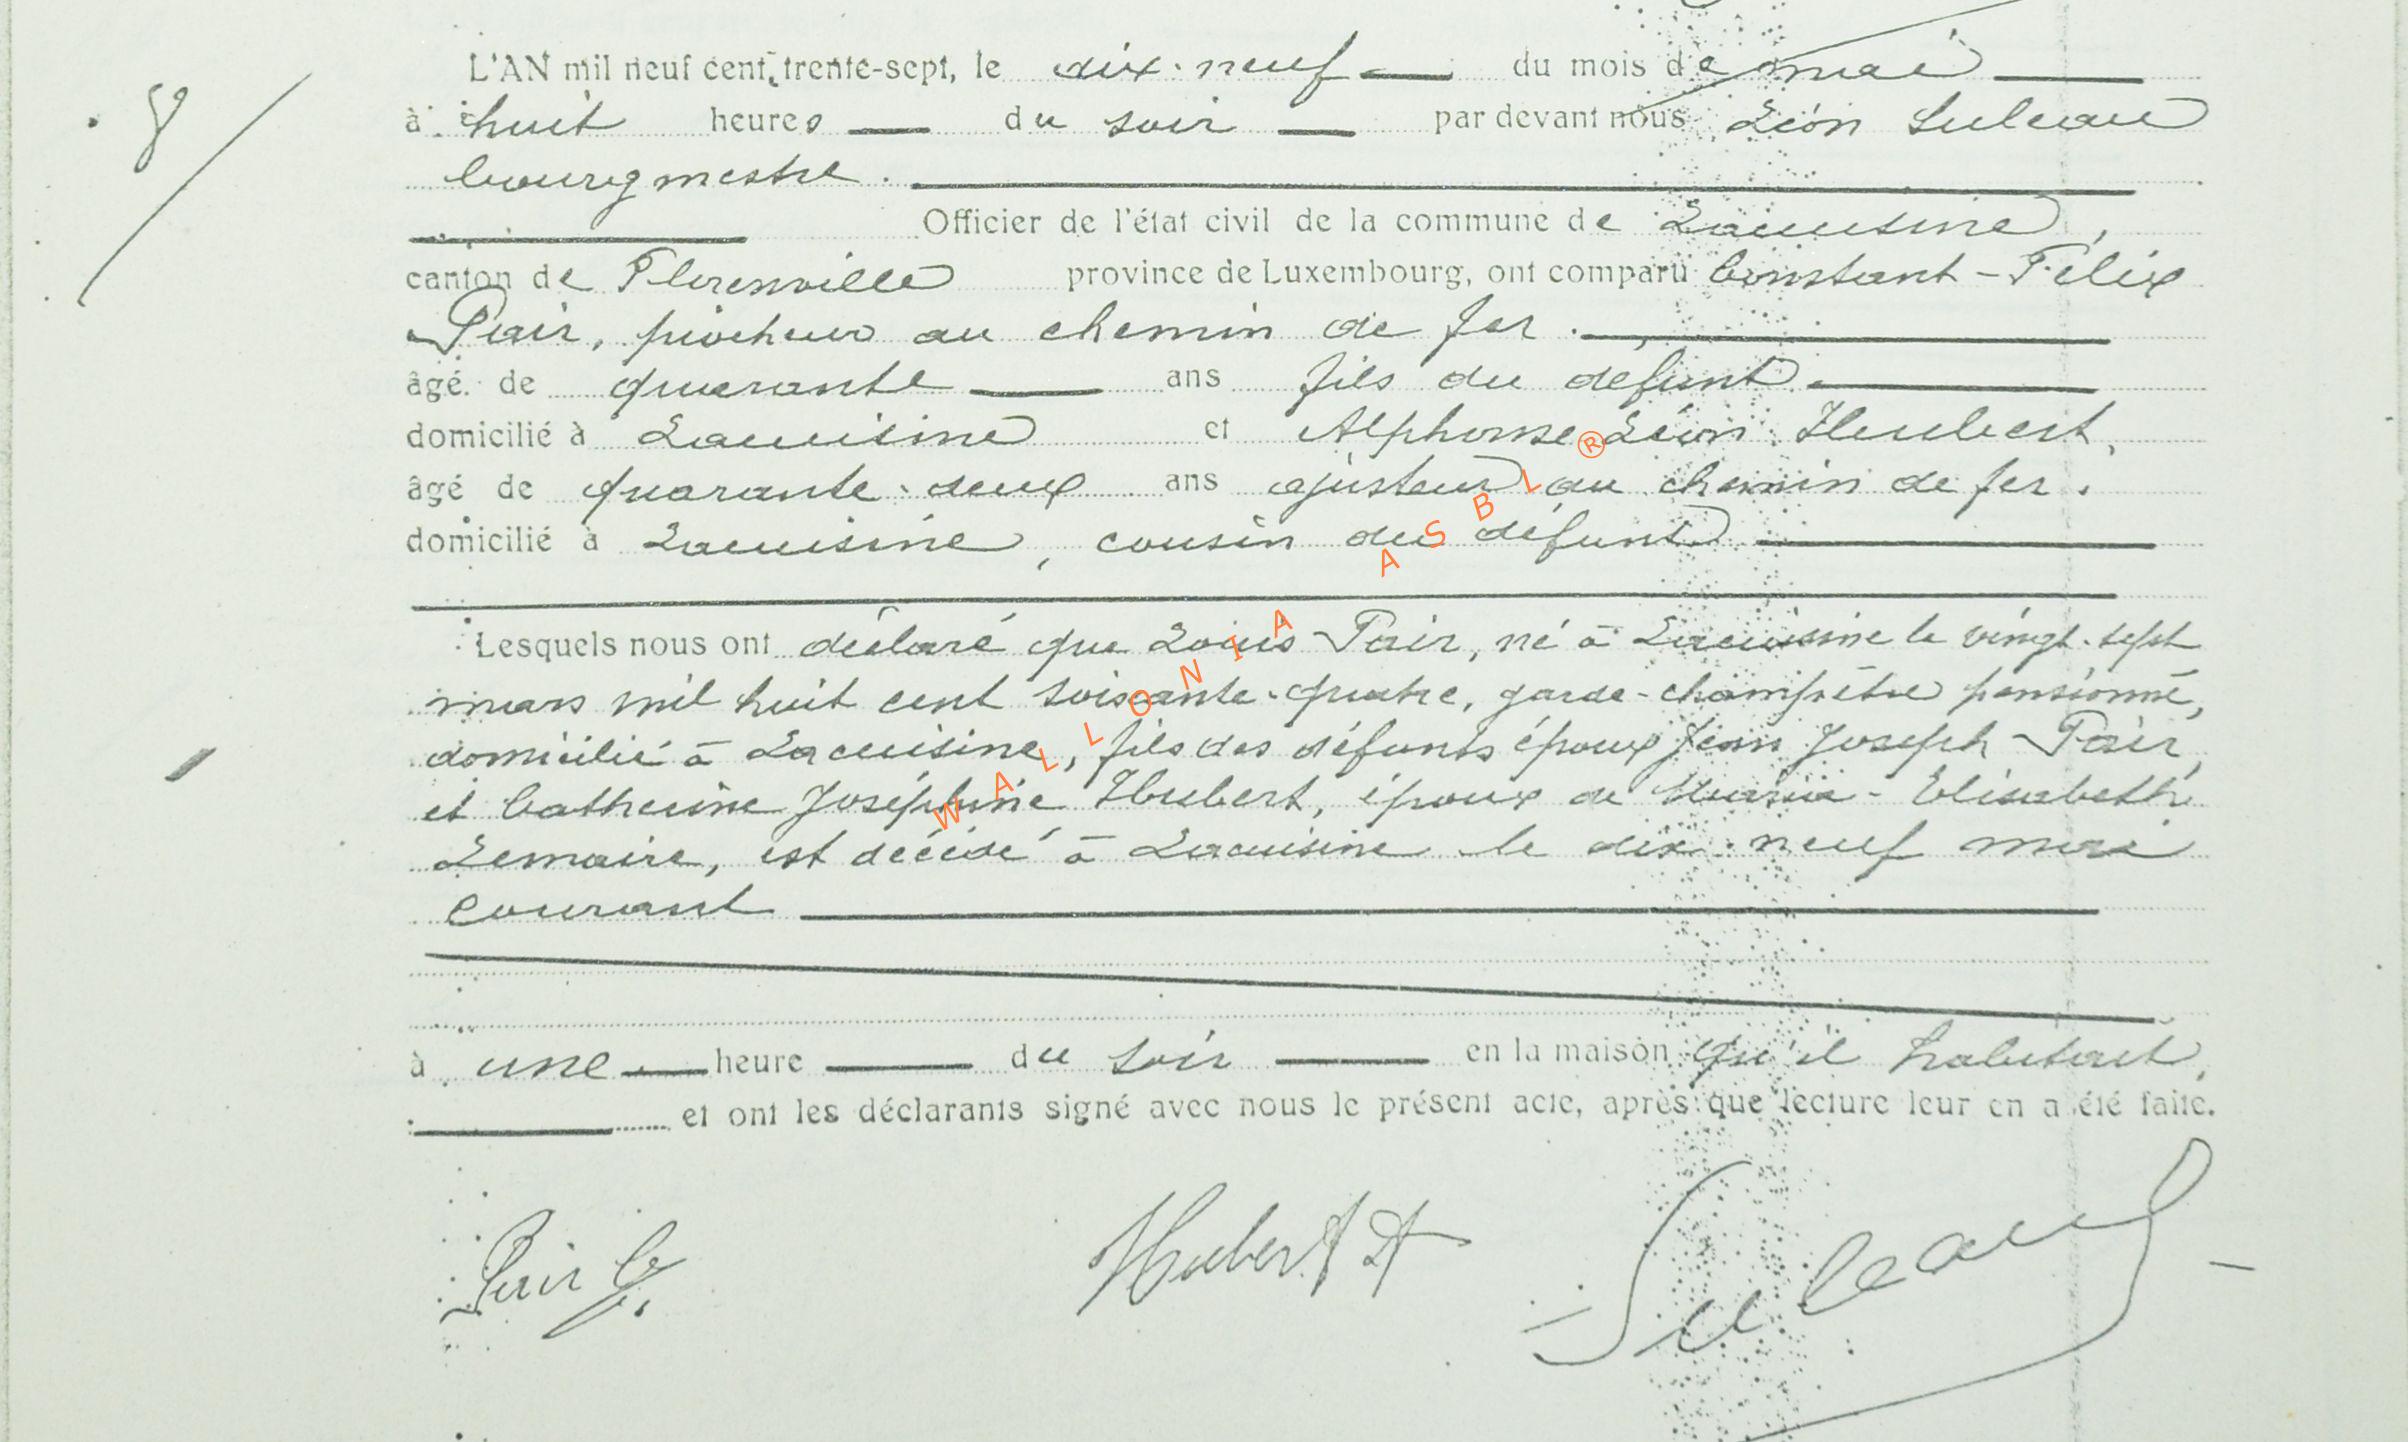 8
L'AN mil neuf cent trente-sept, le dix-neuf du mois de mai
à huit heures du soir par devant nous Léon Suleau
bourgmestre.
Officier de l'état civil de la commune de Lacuisine,
canton de Florenville province de Luxembourg, ont comparu Constant-Félix
Pair, piocheur au chemin de fer.
âgé de quarante ans fils du défunt
domicilié à Lacuisine et Alphonse Léon Hubert,
âgé de quarante-deux ans ajusteur au chemin de fer.
domicilié à Lacuisine, cousin du défunt
Lesquels nous ont déclaré que Louis Pair, né à Lacuisine le vingt-sept
mars mil huit cent soixante-quatre, garde-champêtre pensionné,
domicilié à Lacuisine, fils des défunts époux Jean Joseph Pair
et Catherine Joséphine Hubert, époux de Maria-Elisabeth
Lemaire, est décédé à Lacuisine le dix-neuf mai
courant
à une heure du soir en la maison qu'il habitait,
et ont les déclarants signé avec nous le présent acte, après que lecture leur en a été faite.
Pair C Hubert A Suleau
WALLONIA ASBL ®